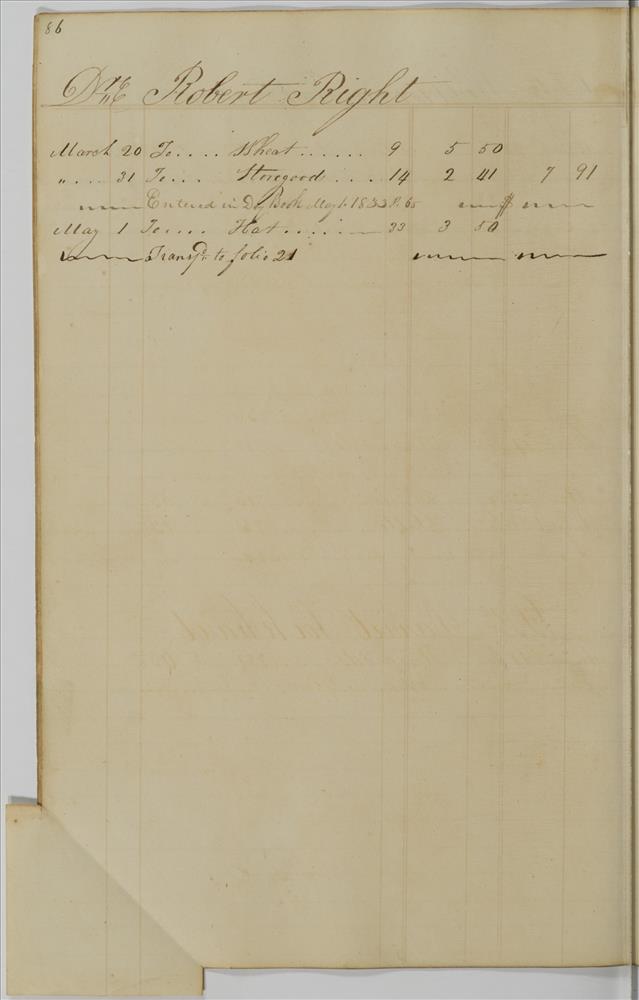 86
Dr. Robert Right
March 20 To .... Wheat ...... 9 5 50
" .... 31 To ... Storegoods ... 14 2 41 7 91
Entered in Day Book May 1. 1833 P. 65 $
May 1 To .... Hat ...... 33 3 50
Transfd. to folio 21